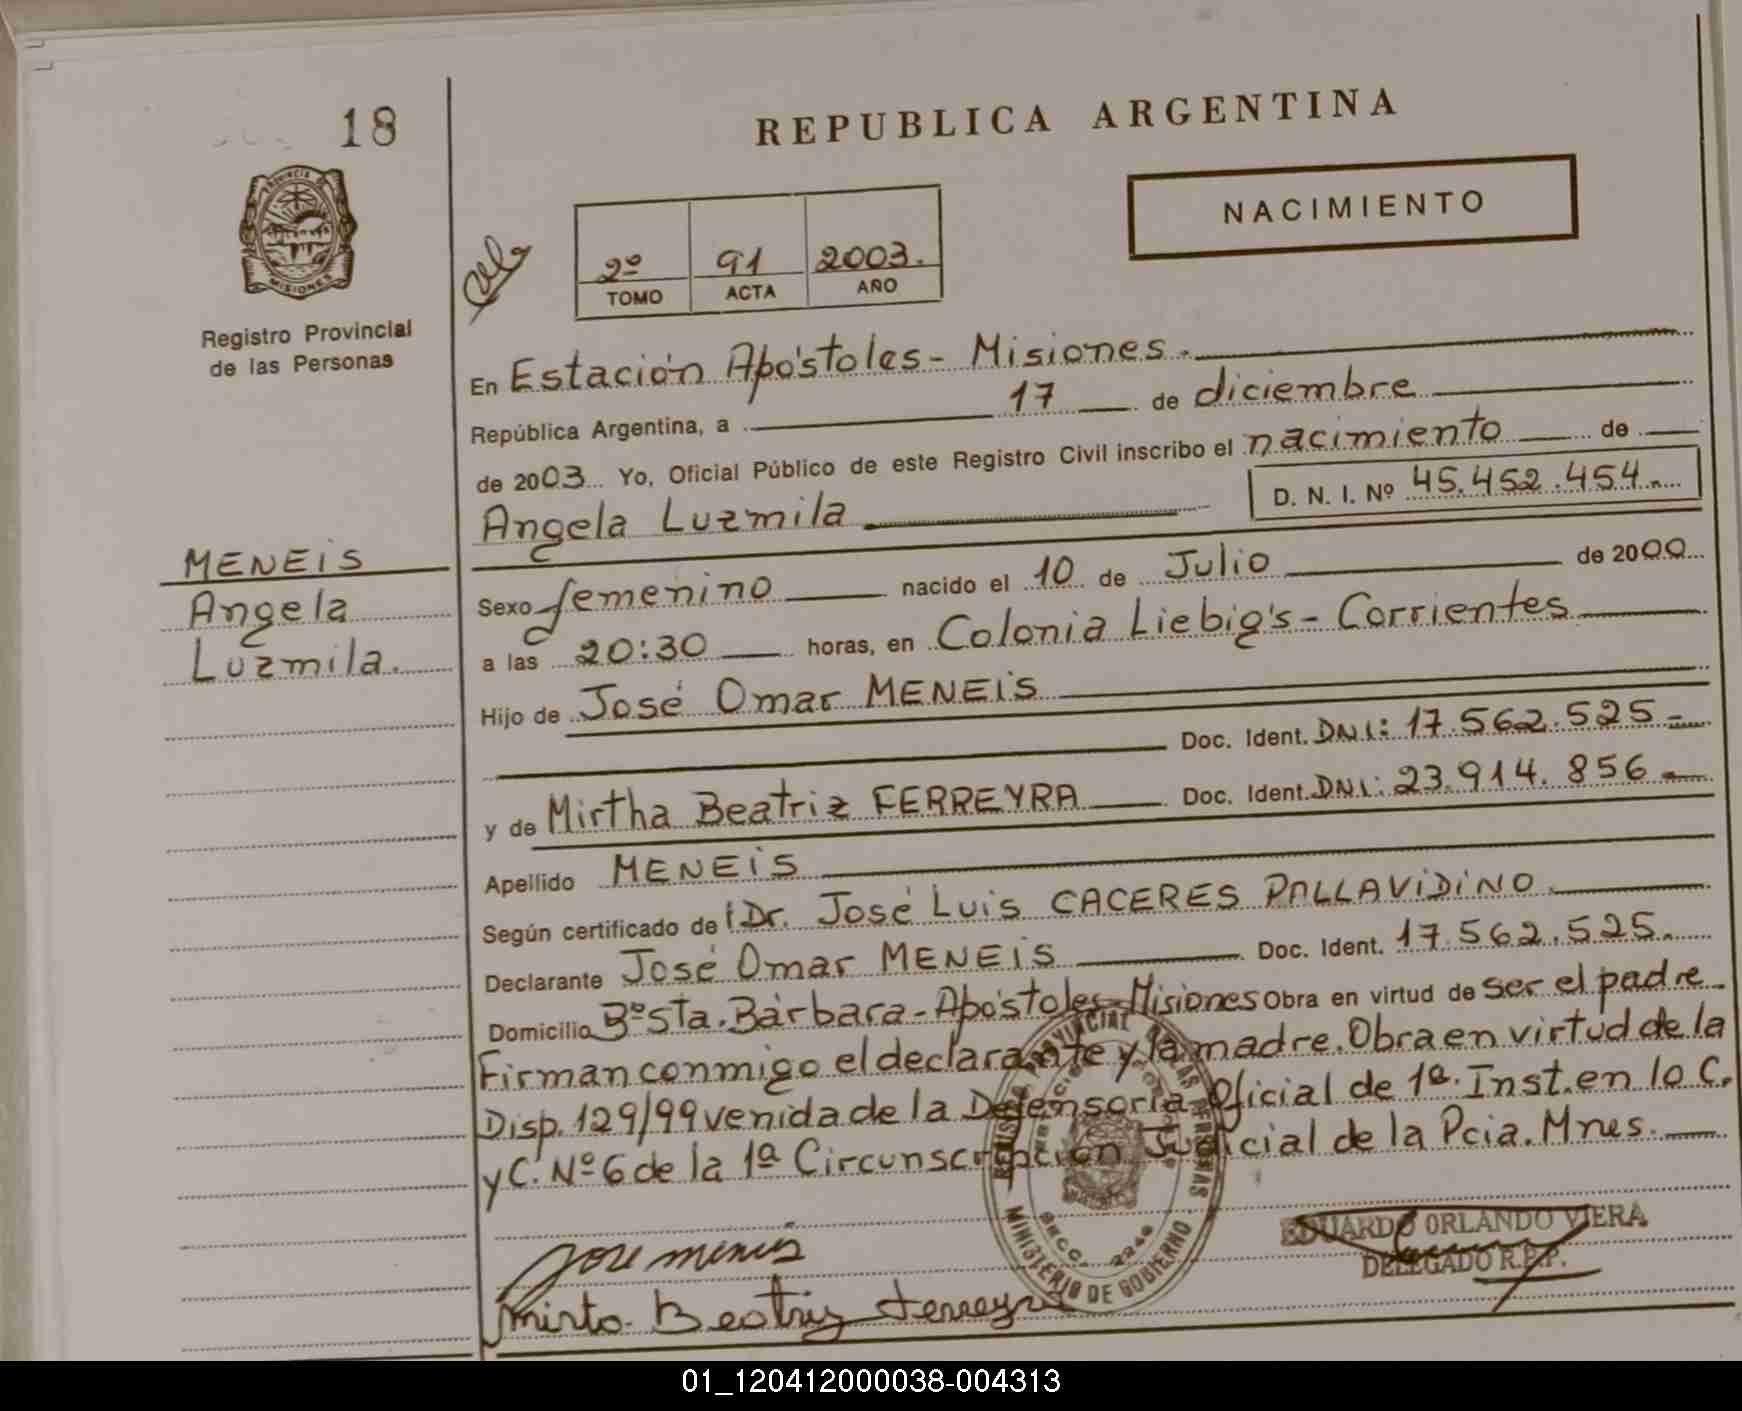 18
REPUBLICA ARGENTINA
NACIMIENTO
PROVINCIA DE
MISIONES
2º 91 2003.
TOMO ACTA AÑO
Registro Provincial
de las Personas
En Estación Apóstoles - Misiones.
República Argentina, a 17 de diciembre
de 2003 Yo, Oficial Público de este Registro Civil inscribo el nacimiento de
Angela Luzmila D. N. I. Nº 45.452.454.
MENEIS
Angela
Luzmila.
Sexo femenino nacido el 10 de Julio de 2000
a las 20:30 horas, en Colonia Liebig's - Corrientes
Hijo de José Omar MENEIS
Doc. Ident. DNI: 17.562.525-
y de Mirtha Beatriz FERREYRA Doc. Ident. DNI: 23.914.856-
Apellido MENEIS
Según certificado de l Dr. José Luis CACERES PALLAVIDINO.
Declarante José Omar MENEIS Doc. Ident. 17.562.525.
Domicilio Bº Sta. Bárbara - Apóstoles - Misiones Obra en virtud de ser el padre.
Firman conmigo el declarante y la madre. Obra en virtud de la
Disp. 129/99 venida de la Defensoría Oficial de 1ª. Inst. en lo C.
y C. Nº 6 de la 1ª Circunscripción Judicial de la Pcia. Mnes.
MINISTERIO DE GOBIERNO
EDUARDO ORLANDO VIERA
DELEGADO R.P.P.
Jose Meneis
Mirta Beatriz Ferreyra
01_120412000038-004313